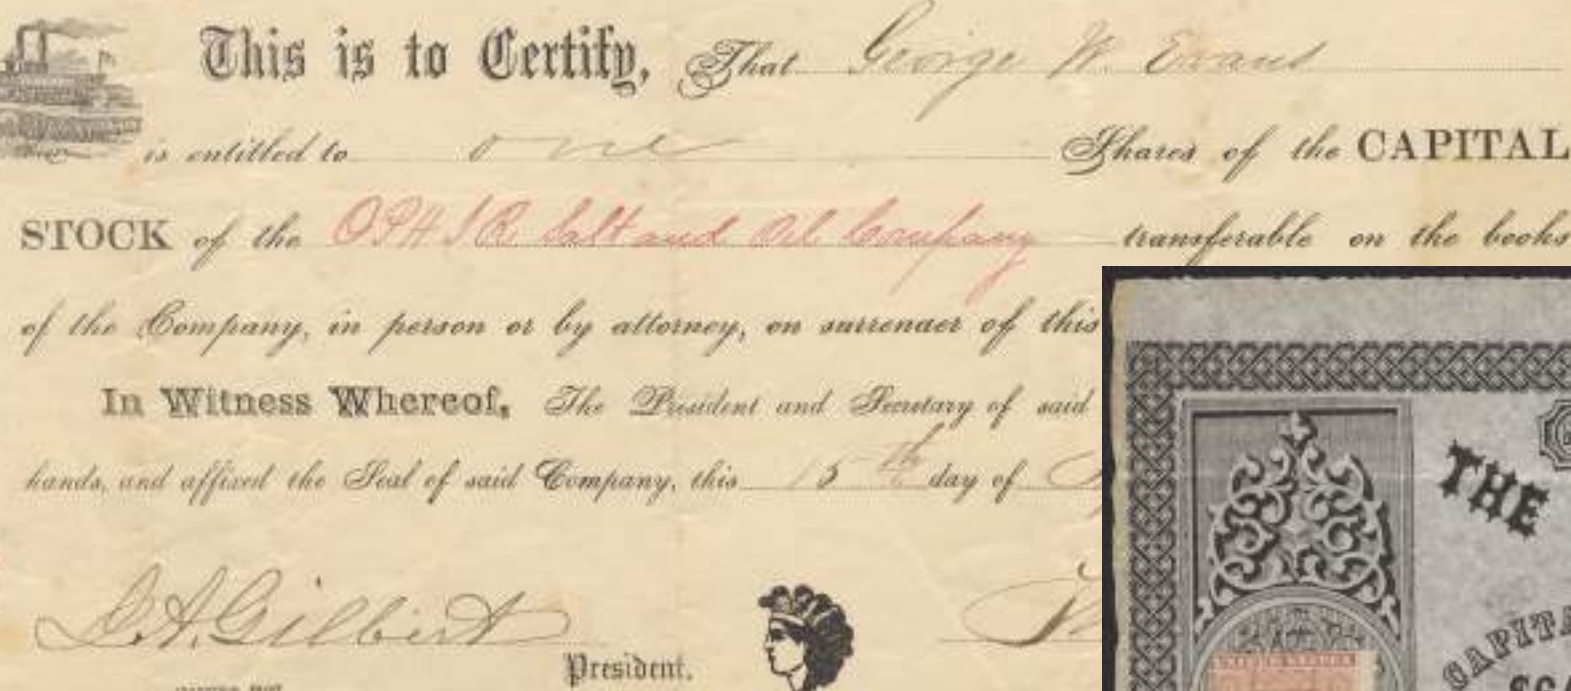 This is to Certify, That George W. Evans
is entitled to one Shares of the CAPITAL
STOCK of the Salt and Oil Company transferable on the books
of the Company, in person or by attorney, on surrender of this
In Witness Whereof, The President and Secretary of said
hands, and affixed the Seal of said Company, this 15th day of
Gilbert
President.
THE
CAPITA